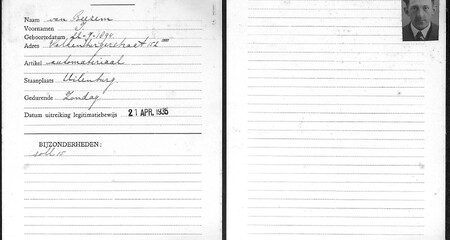 Naam van Beesem
Voornamen J.
Geboortedatum 22-9-1899
Adres Valkenburgerstraat 152 III
Artikel automateriaal
Staanplaats Uilenburg.
Gedurende Zondag
Datum uitreiking legitimatiebewijs 21 APR. 1935
BIJZONDERHEDEN: